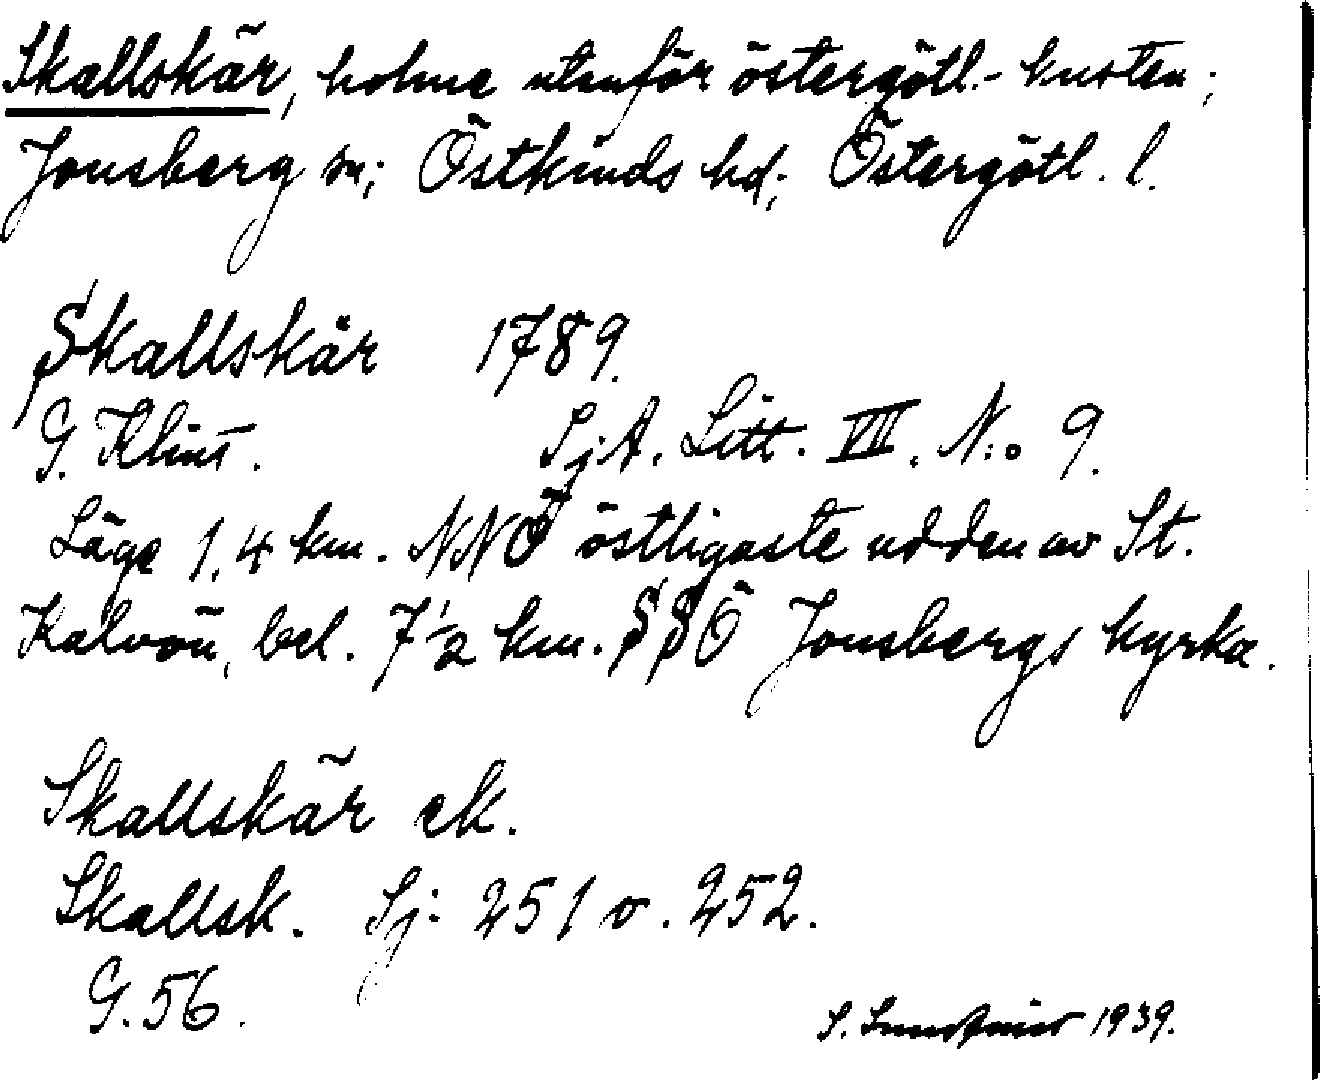 Skallskär, holme utanför östergötl.-kusten;
Jonsberg sn; Östkinds hd; Östergötl. l.
Skallskär 1789.
G. Klint. SjA. Litt. VII. N:o 9.
Läge 1,4 km. NNÖ östligaste udden av St.
Kalvön, bel. 7 1/2 km. SSÖ Jonsbergs kyrka.
Skallskär ek.
Skallsk. Sj: 251 o. 252.
G. 56.
S. 1939.